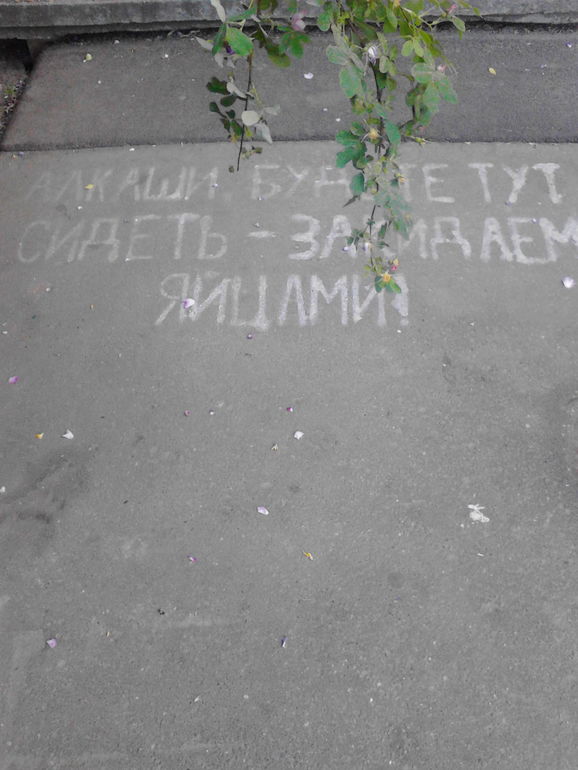 АЛКАШИ, БУДЕТЕ ТУТ
СИДЕТЬ - ЗАКИДАЕМ
ЯЙЦАМИ!